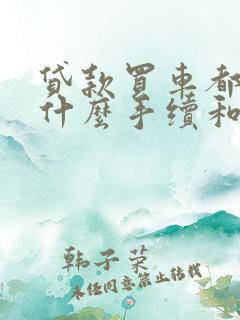 贷款买车都
什麼手续和
韩子荣
未经同意禁止转载